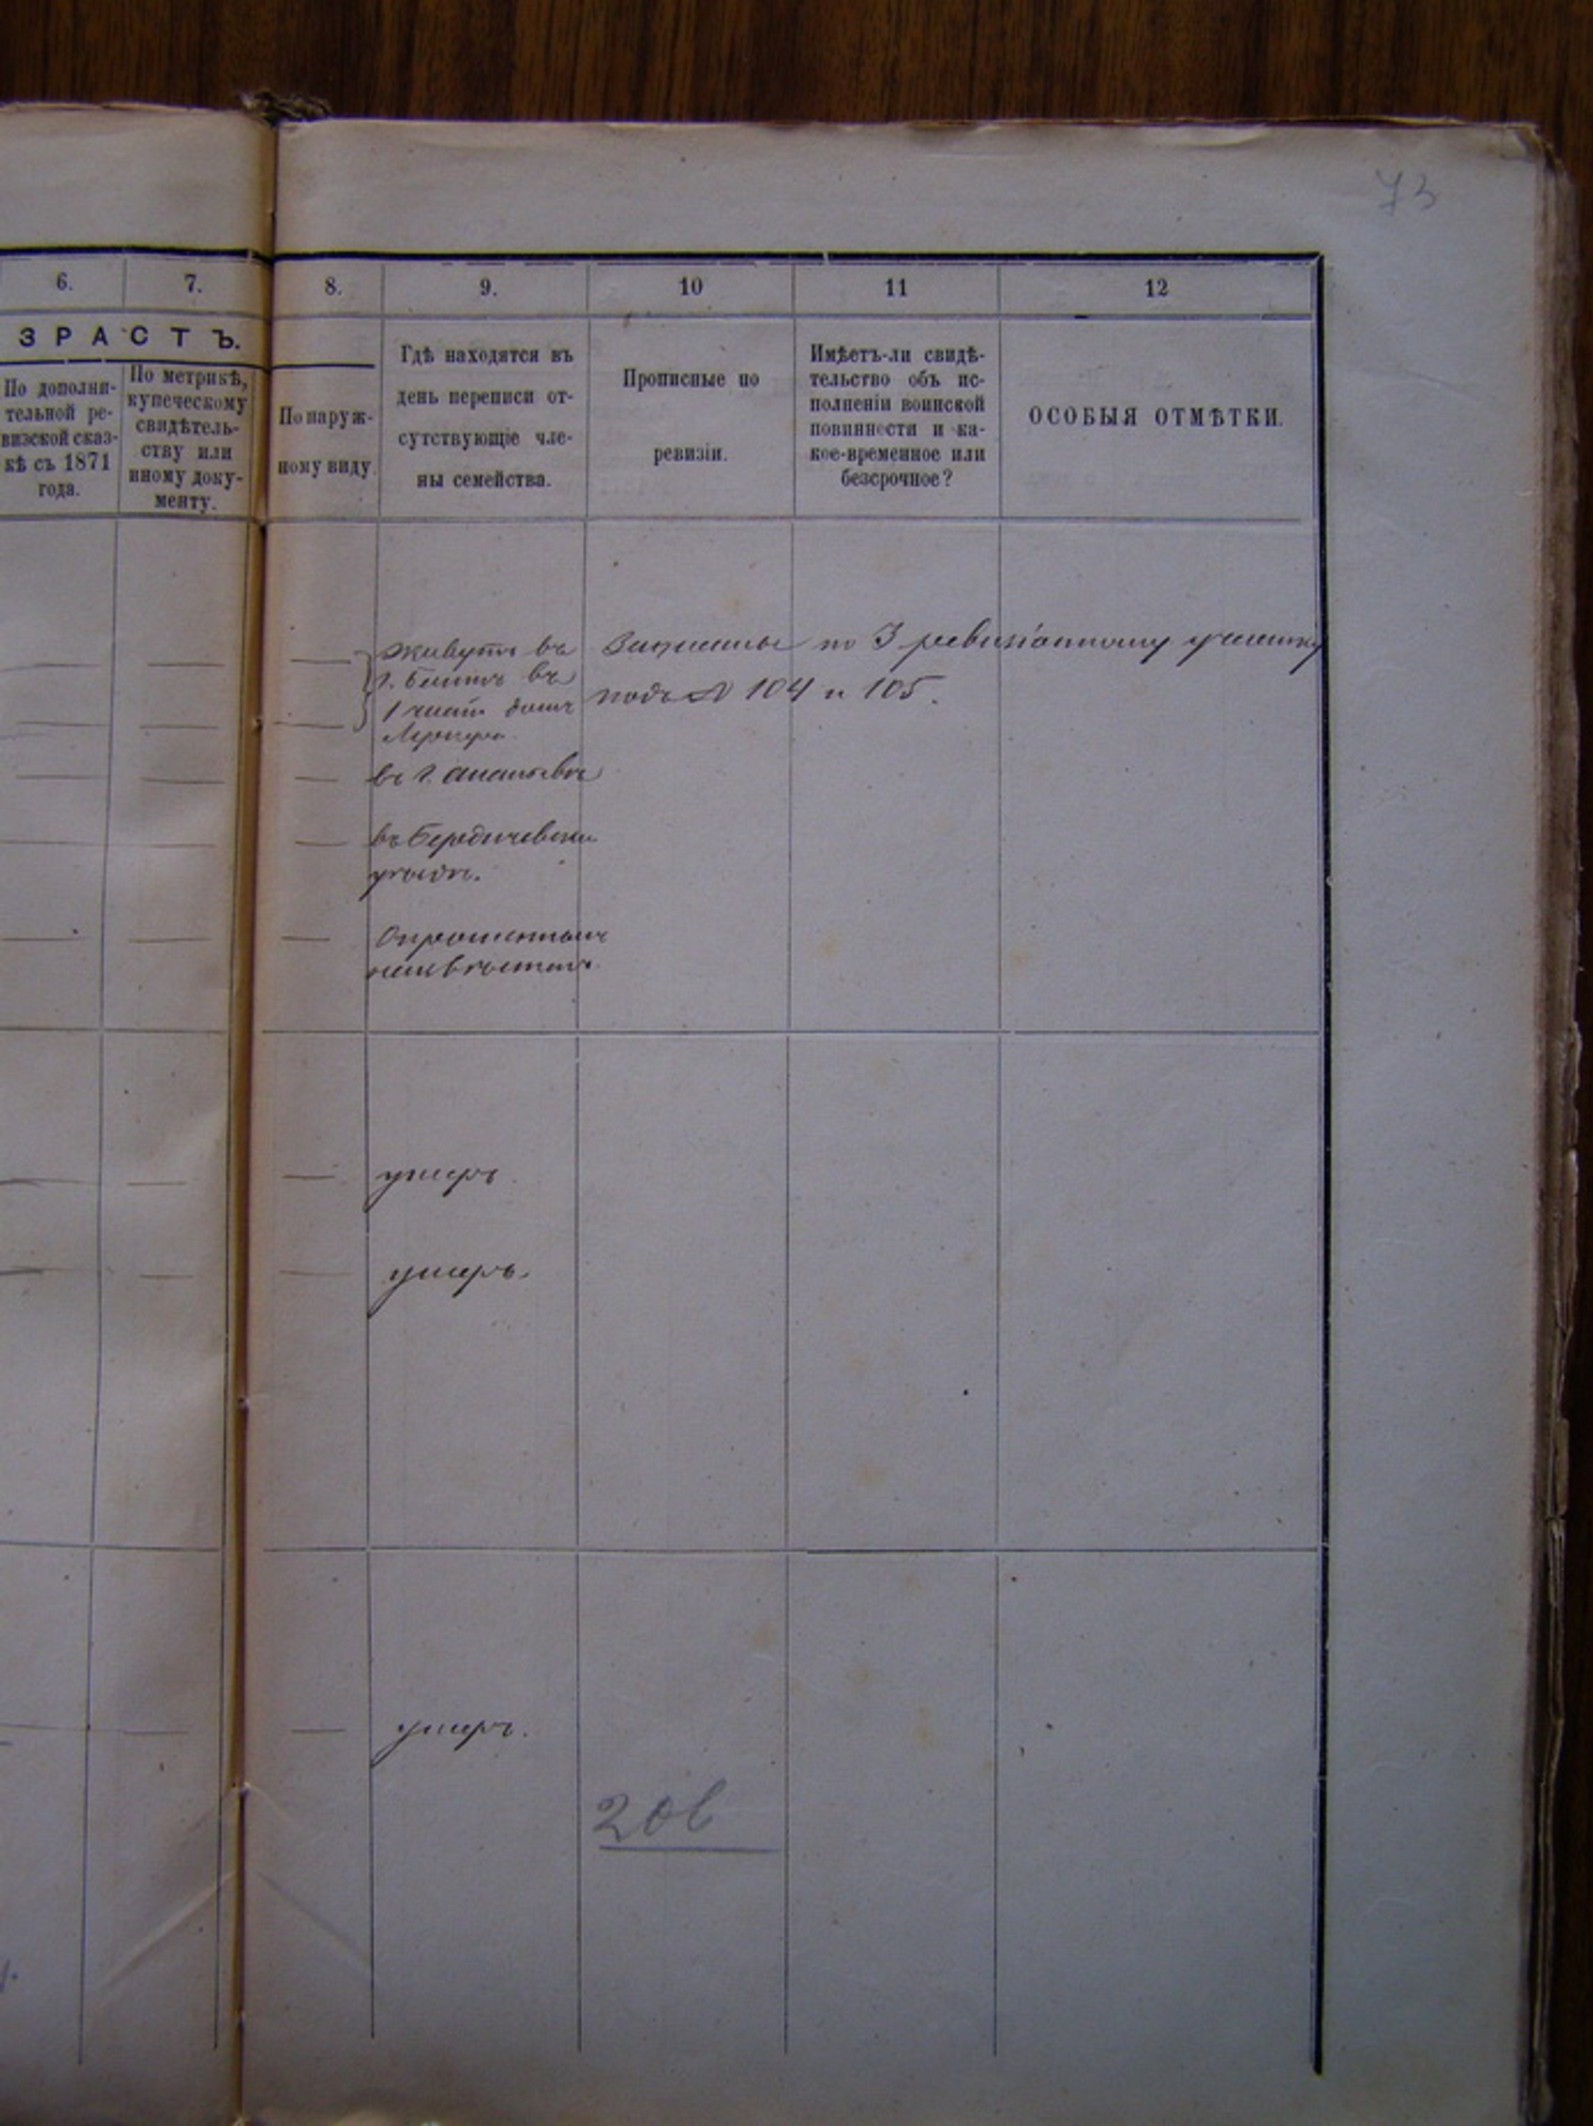 73
6.
7.
8.
9.
10
11
12
ЗРАСТЪ.
По дополни-
тельной ре-
визской сказ-
кѣ съ 1871
года.
По метрикѣ,
купеческому
свидѣтель-
ству или
иному доку-
менту.
По наруж-
ному виду.
Гдѣ находятся въ
день переписи от-
сутствующіе чле-
ны семейства.
Прописные по
ревизіи.
Имѣетъ-ли свидѣ-
тельство объ ис-
полненіи воинской
повинности и ка-
кое-временное или
безсрочное?
ОСОБЫЯ ОТМѢТКИ.
Живутъ въ
въ
1 части домъ
Записаны по 3 ревизіонному участку
подъ № 104 и 105.
въ г. Ананьевѣ
въ Бердичевскомъ
уѣздѣ.
Опрошеннымъ
неизвѣстно.
умеръ.
умеръ.
умеръ.